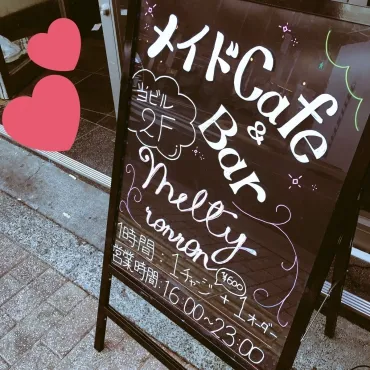 メイドCafe
&
Bar
当ビル
2F
melty
ronron
¥600
1時間:1チャージ+1オーダー
営業時間:16:00~23:00